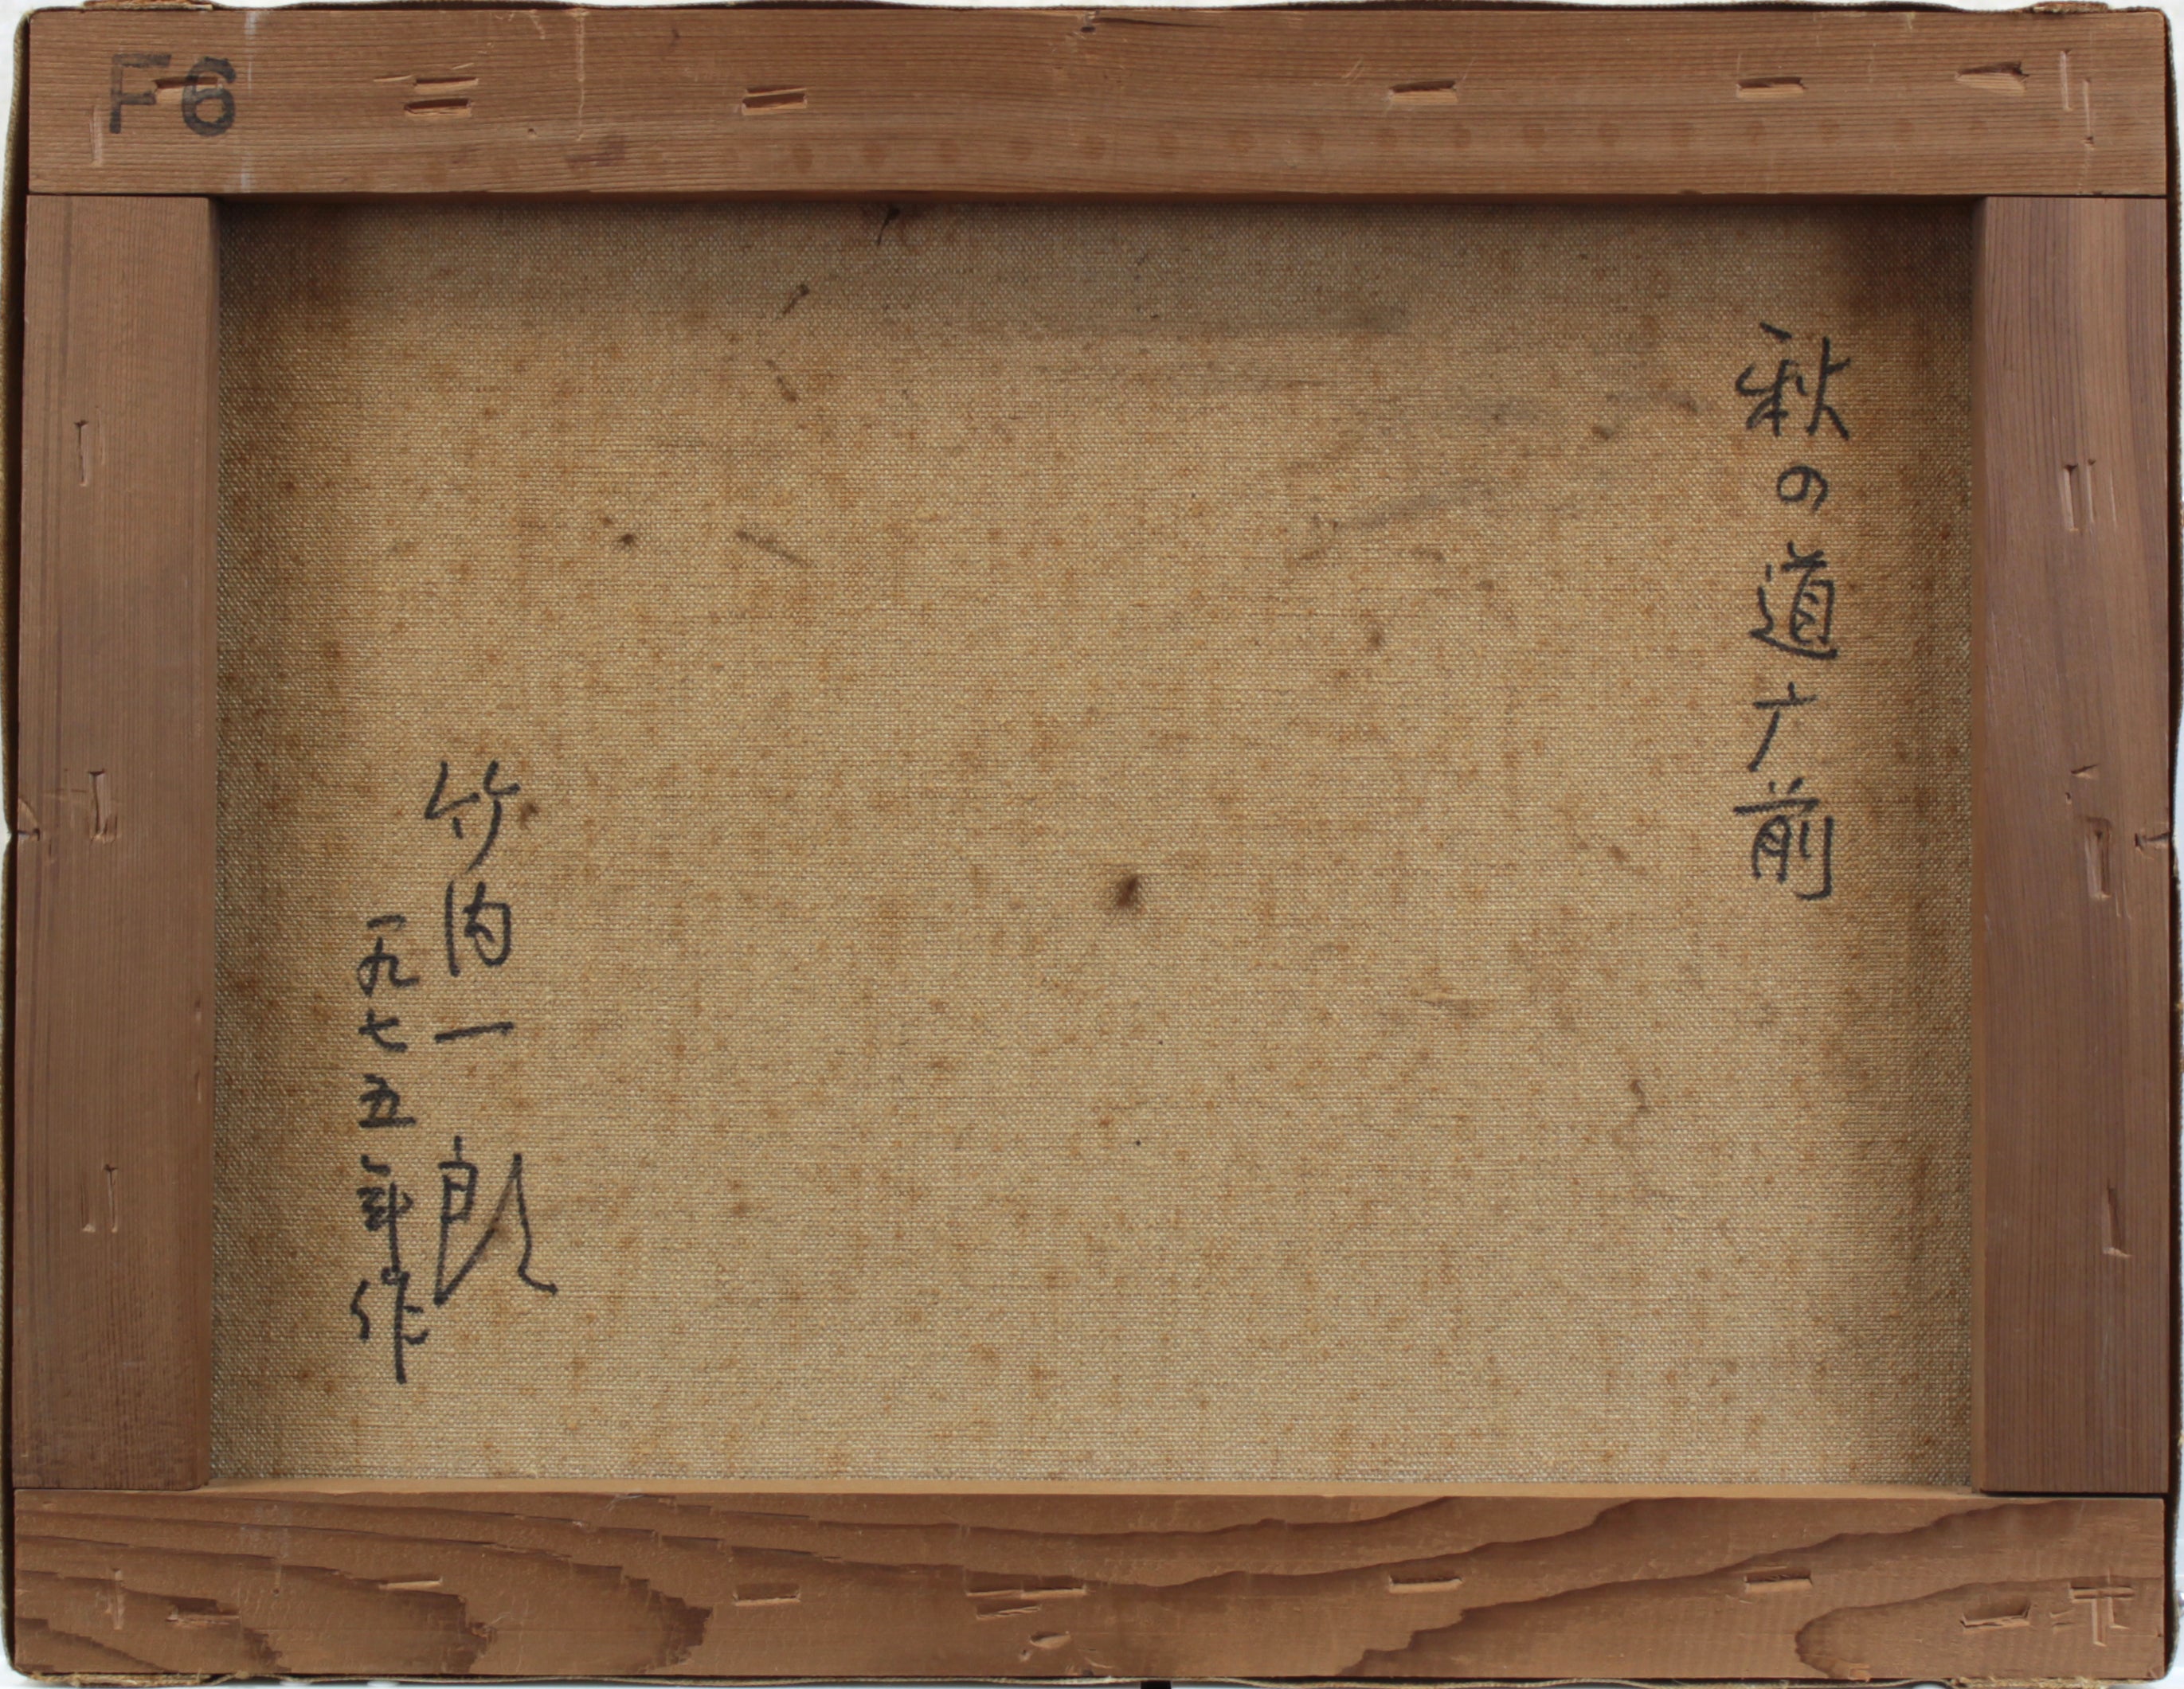 F6
秋の道广前
竹内一郎
一九七五年作